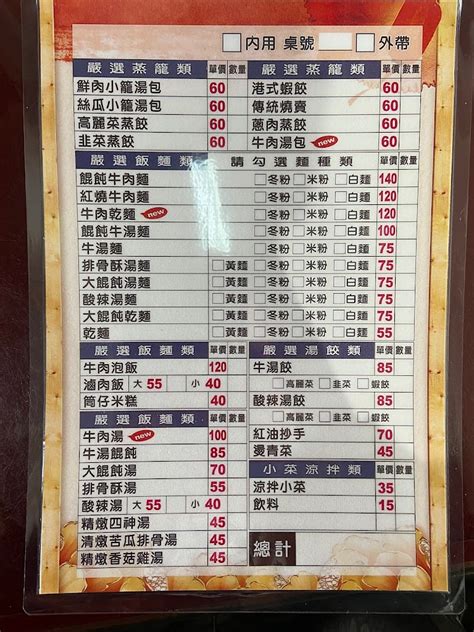 □內用 桌號 □外帶
嚴選蒸籠類 單價 數量 嚴選蒸籠類 單價 數量
鮮肉小籠湯包 60 港式蝦餃 60
絲瓜小籠湯包 60 傳統燒賣 60
高麗菜蒸餃 60 蔥肉蒸餃 60
韭菜蒸餃 60 牛肉湯包 new 60
嚴選飯麵類 請勾選麵種類 單價 數量
餛飩牛肉麵 □冬粉 □米粉 □白麵 140
紅燒牛肉麵 □冬粉 □米粉 □白麵 120
牛肉乾麵 new □冬粉 □米粉 □白麵 120
餛飩牛湯麵 □冬粉 □米粉 □白麵 100
牛湯麵 □冬粉 □米粉 □白麵 75
排骨酥湯麵 □黃麵 □冬粉 □米粉 □白麵 75
大餛飩湯麵 □黃麵 □冬粉 □米粉 □白麵 75
酸辣湯麵 □黃麵 □冬粉 □米粉 □白麵 75
大餛飩乾麵 □黃麵 □冬粉 □米粉 □白麵 75
乾麵 □黃麵 □冬粉 □米粉 □白麵 55
嚴選飯麵類 單價 數量 嚴選湯餃類 單價 數量
牛肉泡飯 120 牛湯餃 85
滷肉飯 大 55 小 40 □高麗菜 □韭菜 □蝦餃
筒仔米糕 40 酸辣湯餃 85
嚴選飯麵類 單價 數量 □高麗菜 □韭菜 □蝦餃
牛肉湯 new 100 紅油抄手 70
牛湯餛飩 85 燙青菜 45
大餛飩湯 70 小菜涼拌類 單價 數量
排骨酥湯 55 涼拌小菜 35
酸辣湯 大 55 小 40 飲料 15
精燉四神湯 45
清燉苦瓜排骨湯 45 總計
精燉香菇雞湯 45